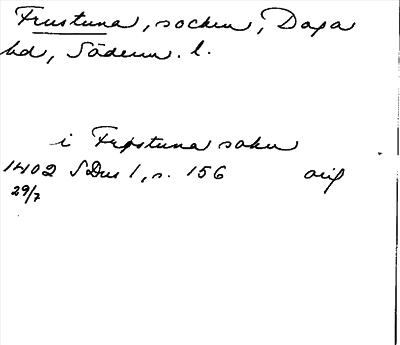 Frustuna, socken, Daga
hd, Söderm. l.
i Frpstuna sokn
1402 SDns 1, s. 156 orig
29/7